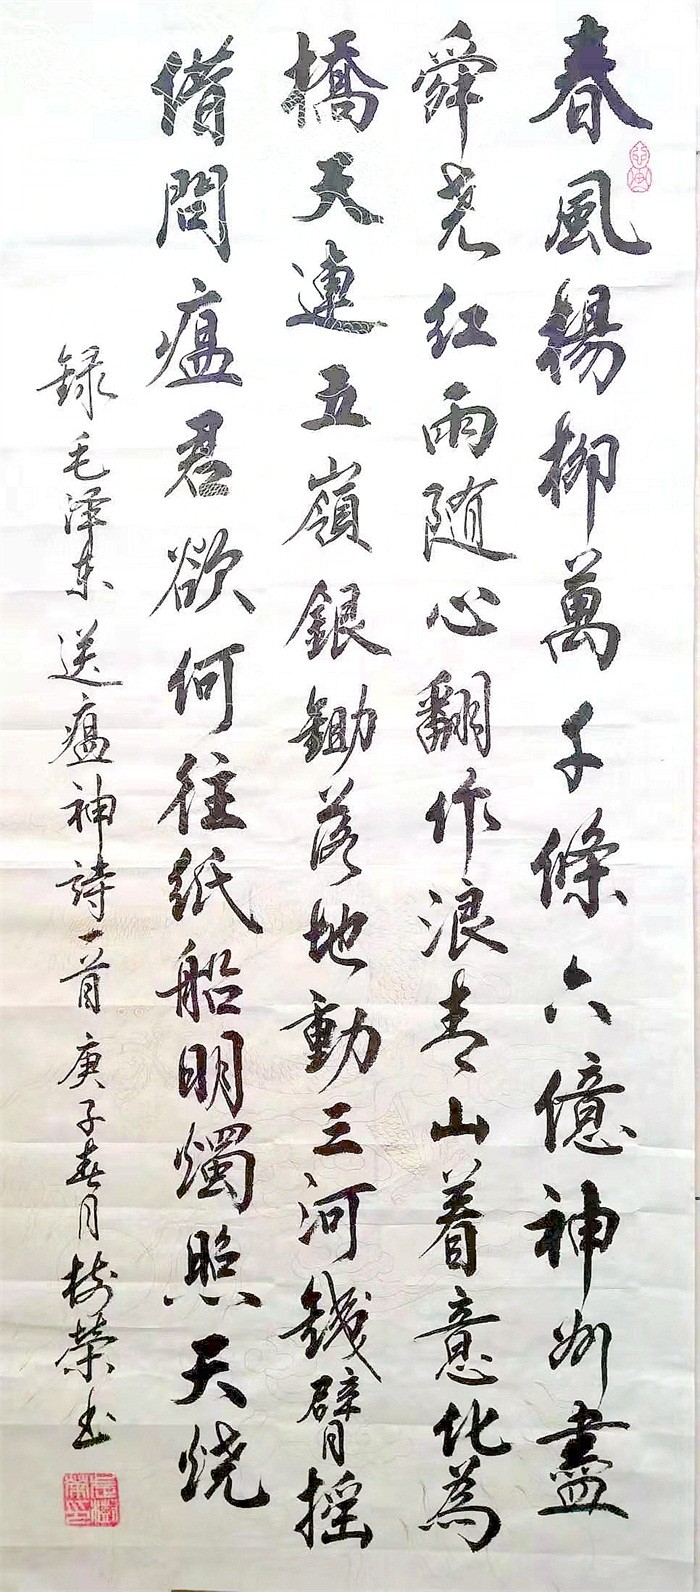 春風楊柳萬千條六億神州盡
舜尧红雨随心翻作浪青山着意化為
橋天連五嶺銀鋤落地動三河鐵臂摇
借問瘟君欲何往纸船明燭照天烧
録毛泽东送瘟神詩一首庚子春月树荣书